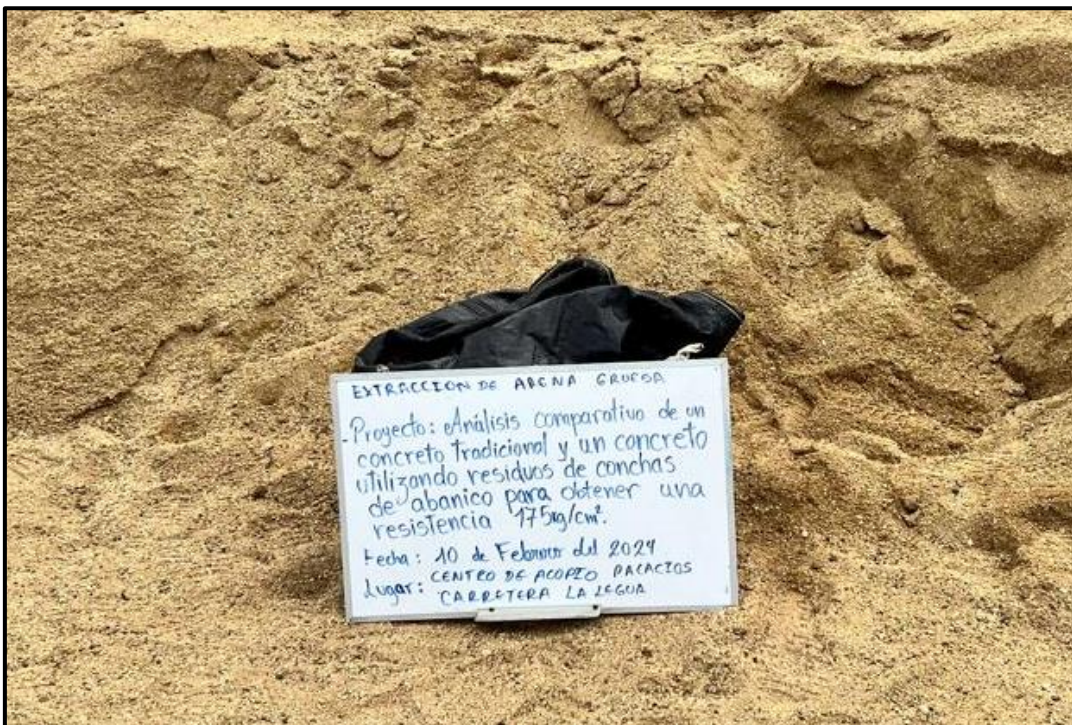 EXTRACCION DE ARENA GRUESA
- Proyecto: Análisis comparativo de un
concreto tradicional y un concreto
utilizando residuos de conchas
de abanico para obtener una
resistencia 175kg/cm².
Fecha: 10 de Febrero del 2024
Lugar: CENTRO DE ACOPIO PALACIOS
CARRETERA LA LEGUA